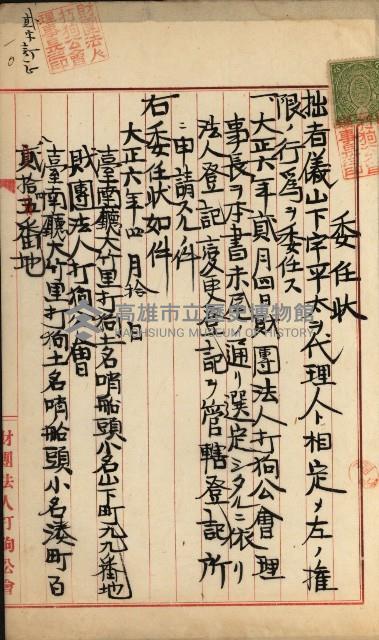 委任狀
拙者儀山下宇平太ヲ代理人ト相定メ左ノ權
限ノ行爲ヲ委任ス
一大正六年貳月四日財團法人打狗公會理
事長ヲ本書末尾ノ通リ選定シタルニ依リ
法人登記變更登記ヲ管轄登記所
ニ申請スル件
右委任狀如件
大正六年四月拾 日
臺南廳大竹里打狗土名哨船頭小名山下町九九番地
財團法人打狗公會
臺南廳大竹里打狗土名哨船頭小名湊町百
貳拾五番地
財團法人打狗公會
財團法人
打狗公會
理事長印
高雄市立歷史博物館
KAOHSIUNG MUSEUM OF HISTORY